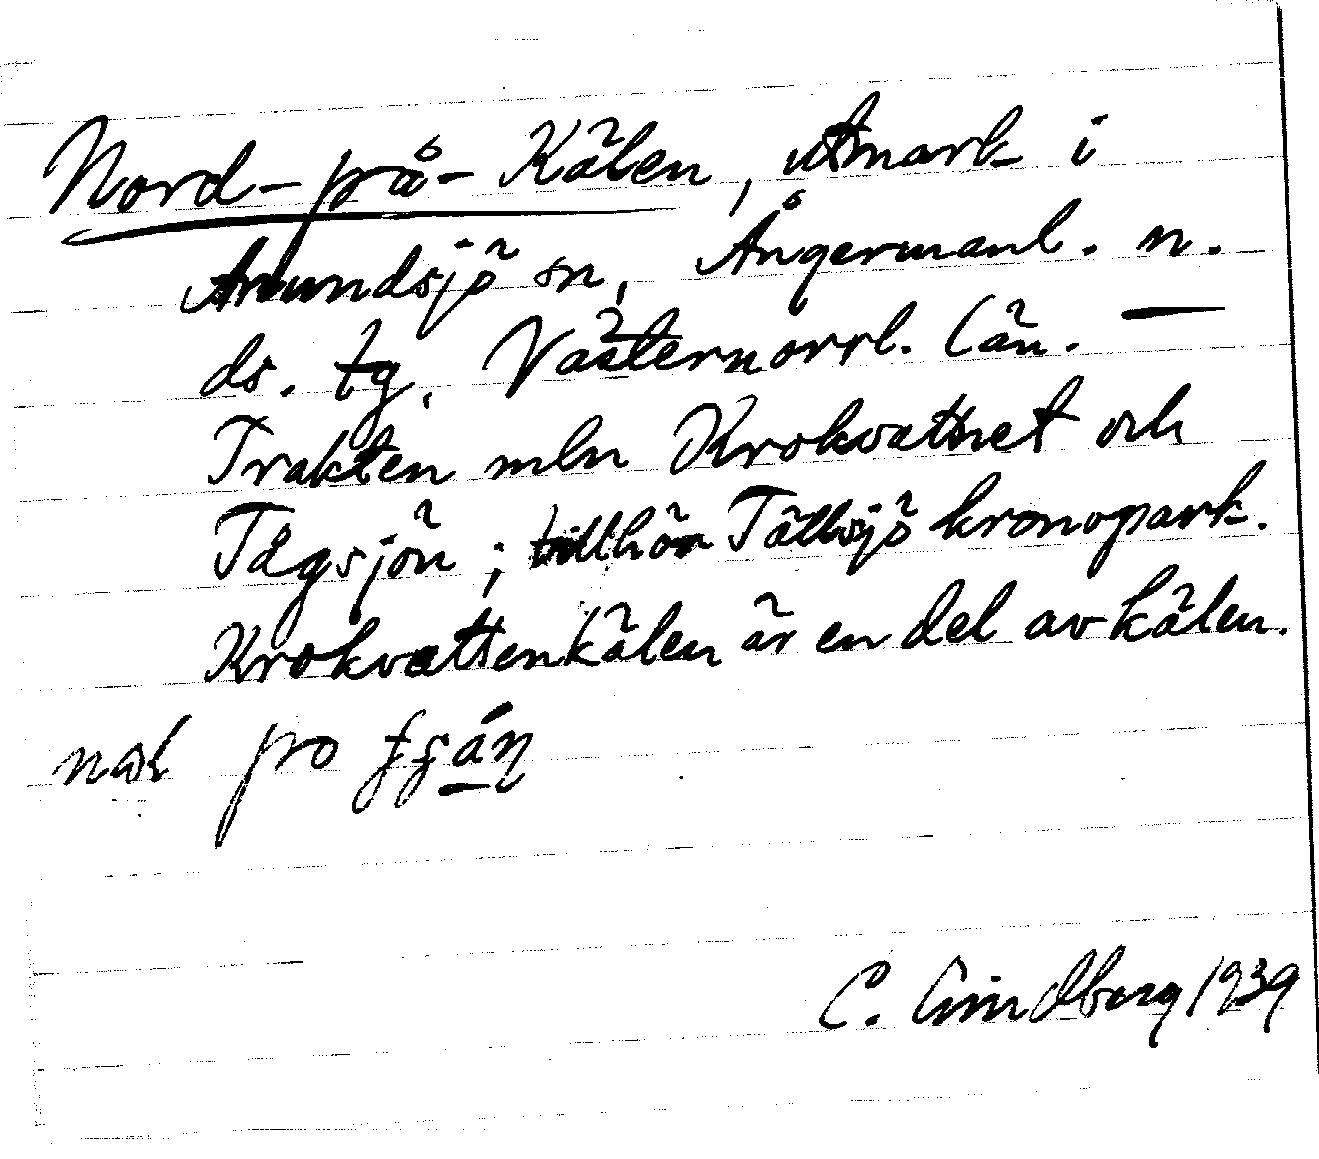 Nord-på-Kälen, utmark i
Anundsjö sn, Ångermanl. n.
ds. tg. Västernorrl. län. —
Trakten mln Krokvattnet och
Tägsjön; tillhör Tällsjö kronopark.
Krokvattenkälen är en del av kälen.
C. Lindberg 1939